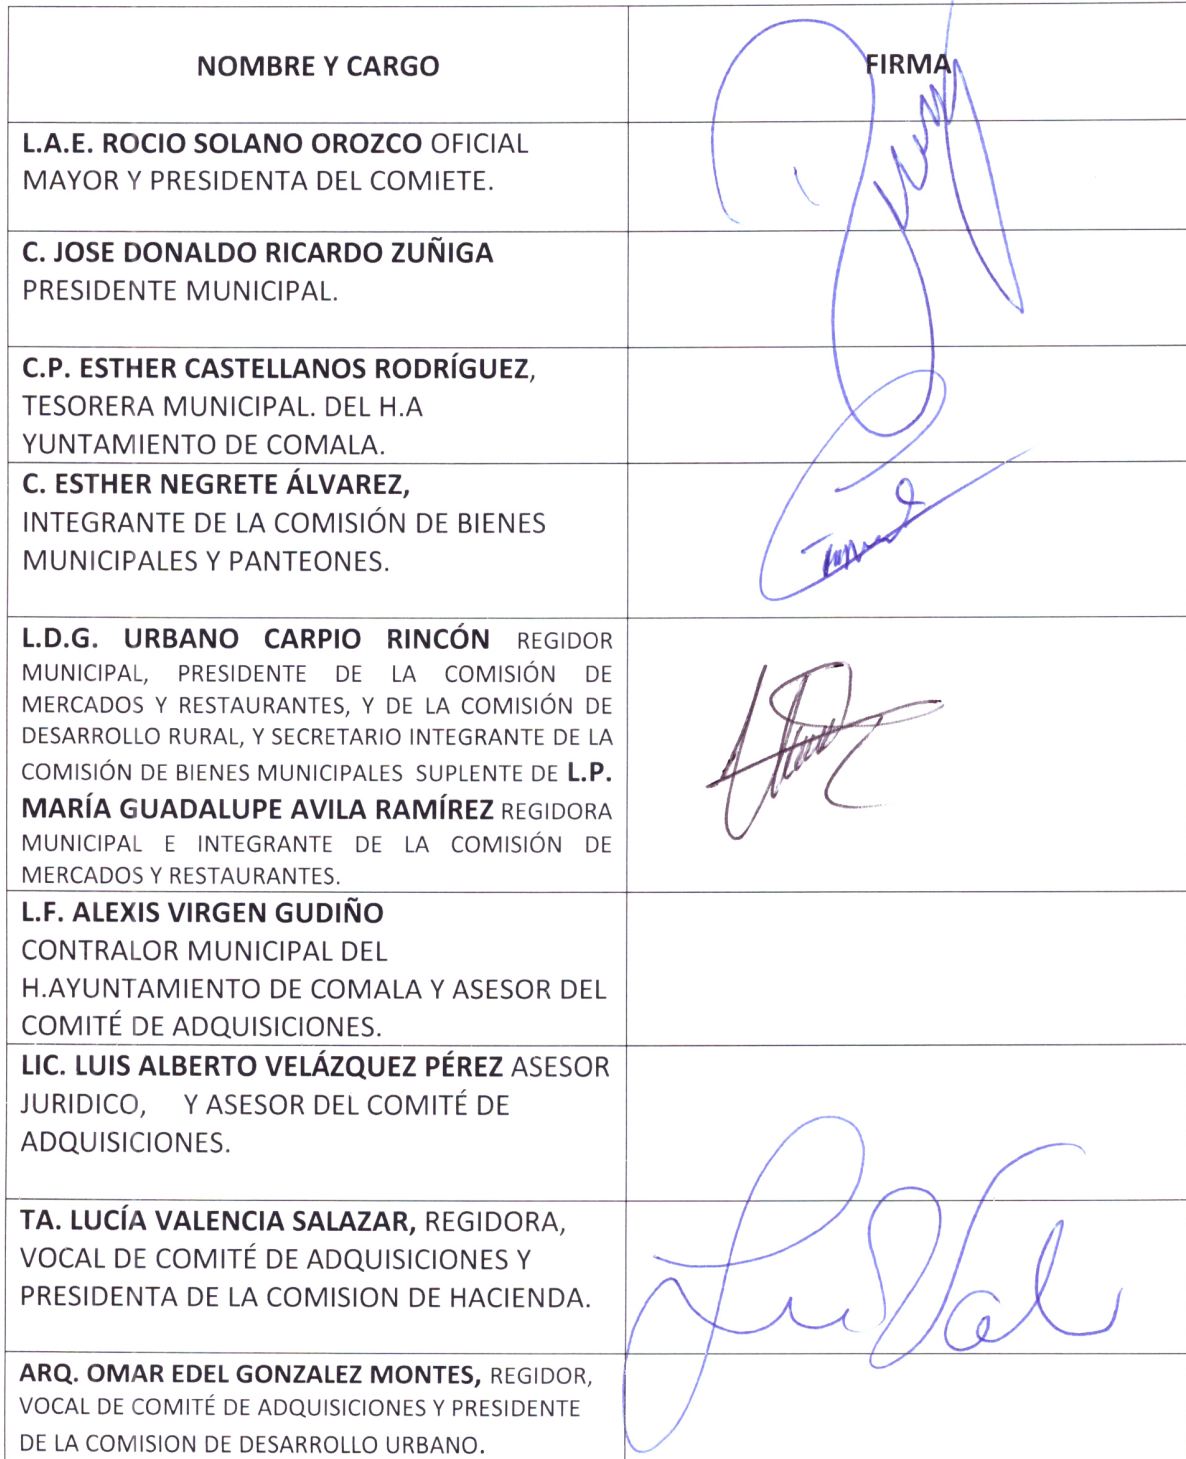 NOMBRE Y CARGO
FIRMA
L.A.E. ROCIO SOLANO OROZCO OFICIAL
MAYOR Y PRESIDENTA DEL COMIETE.
C. JOSE DONALDO RICARDO ZUÑIGA
PRESIDENTE MUNICIPAL.
C.P. ESTHER CASTELLANOS RODRÍGUEZ,
TESORERA MUNICIPAL. DEL H.A
YUNTAMIENTO DE COMALA.
C. ESTHER NEGRETE ÁLVAREZ,
INTEGRANTE DE LA COMISIÓN DE BIENES
MUNICIPALES Y PANTEONES.
L.D.G. URBANO CARPIO RINCÓN REGIDOR
MUNICIPAL, PRESIDENTE DE LA COMISIÓN DE
MERCADOS Y RESTAURANTES, Y DE LA COMISIÓN DE
DESARROLLO RURAL, Y SECRETARIO INTEGRANTE DE LA
COMISIÓN DE BIENES MUNICIPALES SUPLENTE DE L.P.
MARÍA GUADALUPE AVILA RAMÍREZ REGIDORA
MUNICIPAL E INTEGRANTE DE LA COMISIÓN DE
MERCADOS Y RESTAURANTES.
L.F. ALEXIS VIRGEN GUDIÑO
CONTRALOR MUNICIPAL DEL
H.AYUNTAMIENTO DE COMALA Y ASESOR DEL
COMITÉ DE ADQUISICIONES.
LIC. LUIS ALBERTO VELÁZQUEZ PÉREZ ASESOR
JURIDICO, Y ASESOR DEL COMITÉ DE
ADQUISICIONES.
TA. LUCÍA VALENCIA SALAZAR, REGIDORA,
VOCAL DE COMITÉ DE ADQUISICIONES Y
PRESIDENTA DE LA COMISION DE HACIENDA.
ARQ. OMAR EDEL GONZALEZ MONTES, REGIDOR,
VOCAL DE COMITÉ DE ADQUISICIONES Y PRESIDENTE
DE LA COMISION DE DESARROLLO URBANO.